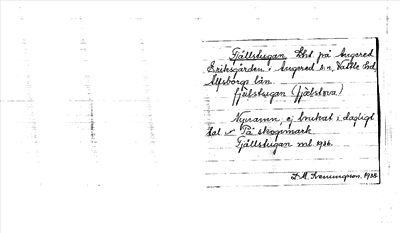 Fjällstugan Lht på Angered
Eriksgården, Angered sn, Vättle hd,
Älfsborgs län.
fjälstugan (fjälstova)
Nynamn, ej brukat i dagligt
tal. På skogsmark
Fjällstugan ml. 1936.
D. M. Svenungsson, 1935